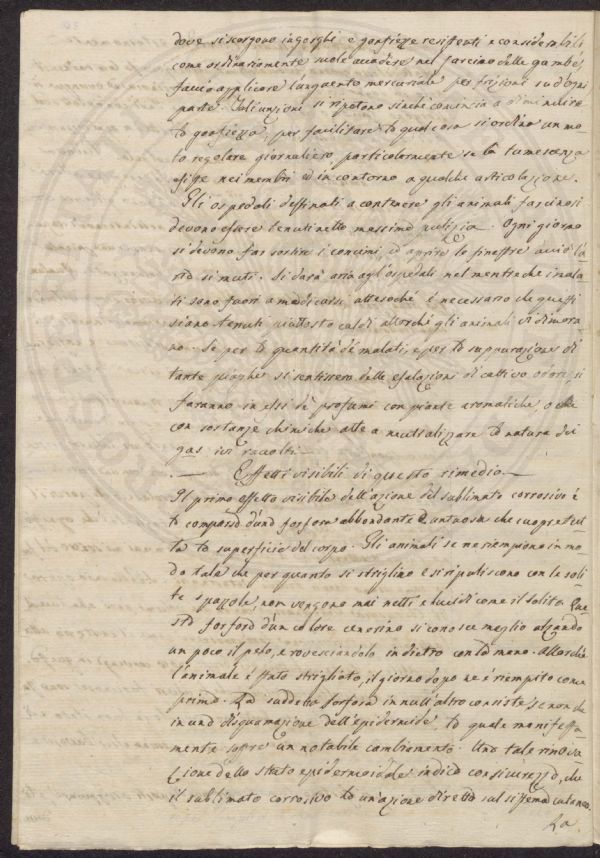 dove si scorgono ingorghi e gonfiezze resistenti e considerabili
come ordinariamente suole accadere nel farcino delle gambe,
faccio applicare l'unguento mercuriale per frizioni su d'ogni
parte. Tali unzioni si ripetono sinché comincia a diminuire
la gonfiezza; per facilitare la qual cosa si ordina un mo-
to regolare giornaliero, particolarmente se la tumescenza
esiste nei membri ed in contorno a qualche articolazione.
Gli ospedali destinati a contenere gli animali farcinosi
devono essere tenuti nella massima pulizia. Ogni giorno
si devono far sortire i concimi, ed aprire le finestre acciò l'a-
ria si muti. Si darà aria agl'ospedali nel mentre che i mala-
ti sono fuori a medicarsi attesoché è necessario che questi
siano tenuti piuttosto caldi allorché gli animali vi dimora-
no. Se per la quantità de malati, e per la suppurazione di
tante piaghe si sentissero delle esalazioni di cattivo odore, si
faranno in essi de profumi con piante aromatiche, o che
con sostanze chimiche atte a neutralizzare la natura dei
gas ivi raccolti.
Effetti visibili di questo rimedio
Il primo effetto visibile dell'azione del sublimato corrosivo è
la comparsa d'una forfora abbondante, untuosa che cuopre tut-
ta la superficie del corpo. Gli animali se ne riempiono in mo-
do tale che per quanto si striglino e si ripuliscono con le soli-
te spazzole, non vengono mai netti e lucidi come il solito. Que-
sta forfora d'un colore cenerino si conosce meglio alzando
un poco il pelo, e rovesciandolo in dietro con la mano. Allorché
l'animale è stato strigliato, il giorno dopo ne è riempito come
prima. La suddetta forfora in null'altro consiste, se non che
in una disquamazione dell'epidermide, la quale manifesta-
mente soffre un notabile cambiamento. Una tale rinova-
zione dello strato epidermoidale indica con sicurezza, che
il sublimato corrosivo ha un'azione diretta sul sistema cutaneo.
La